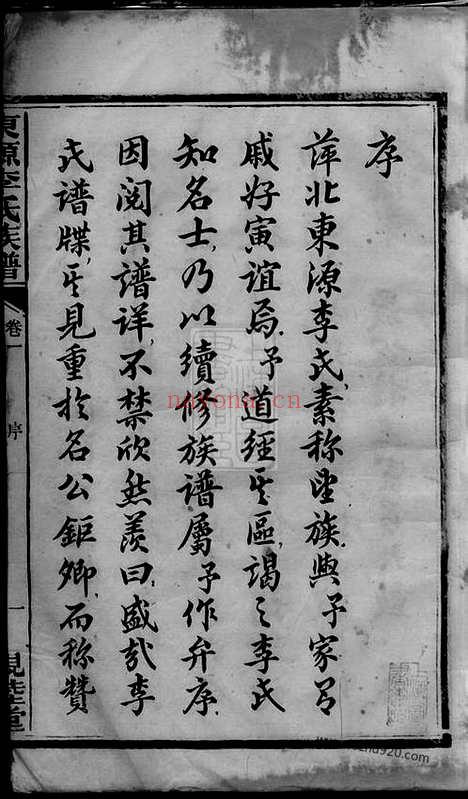 序
萍北東源李氏素稱望族與予家有
戚好寅誼焉予道經其區謁之李氏
知名士乃以續修族譜屬予作弁序
因閱其譜詳不禁欣然羨曰盛哉李
氏譜牒其見重於名公鉅卿而称贊
東源李氏族譜
卷一
序
一
nayona.cn